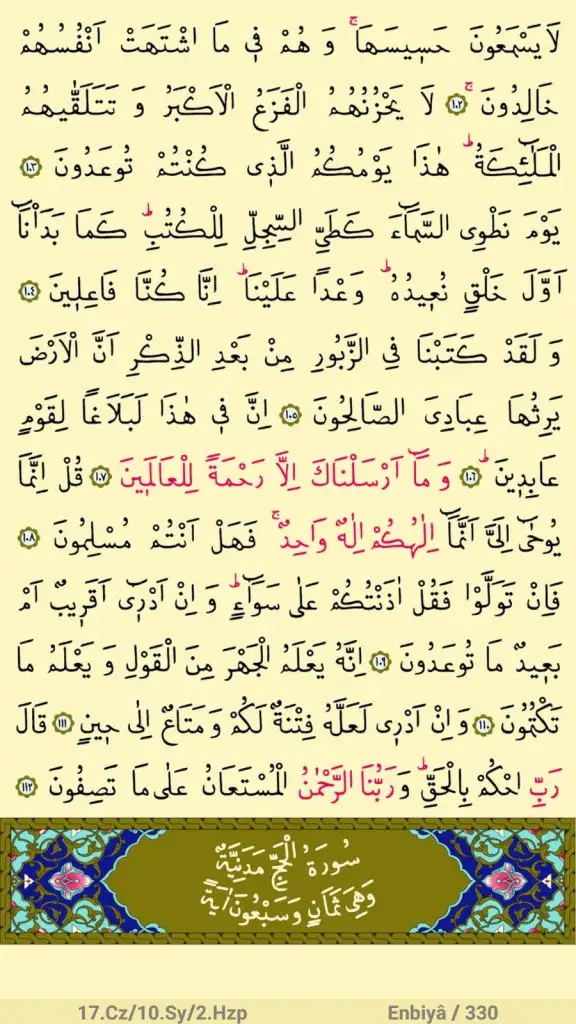 لَا يَسْمَعُونَ حَسٖيسَهَاۚ وَ هُمْ فٖى مَا اشْتَهَتْ اَنْفُسُهُمْ
خَالِدُونَۚ ﴿١٠٢﴾ لَا يَحْزُنُهُمُ الْفَزَعُ الْاَكْبَرُ وَ تَتَلَقّٰيهُمُ
الْمَلٰٓئِكَةُؕ هٰذَا يَوْمُكُمُ الَّذٖى كُنْتُمْ تُوعَدُونَ ﴿١٠٣﴾
يَوْمَ نَطْوِى السَّمَٓاءَ كَطَىِّ السِّجِلِّ لِلْكُتُبِؕ كَمَا بَدَاْنَٓا
اَوَّلَ خَلْقٍ نُعٖيدُهُؕ وَعْدًا عَلَيْنَاؕ اِنَّا كُنَّا فَاعِلٖينَ ﴿١٠٤﴾
وَ لَقَدْ كَتَبْنَا فِى الزَّبُورِ مِنْ بَعْدِ الذِّكْرِ اَنَّ الْاَرْضَ
يَرِثُهَا عِبَادِىَ الصَّالِحُونَ ﴿١٠٥﴾ اِنَّ فٖى هٰذَا لَبَلَاغًا لِقَوْمٍ
عَابِدٖينَؕ ﴿١٠٦﴾ وَ مَٓا اَرْسَلْنَاكَ اِلَّا رَحْمَةً لِلْعَالَمٖينَ ﴿١٠٧﴾ قُلْ اِنَّمَا
يُوحٰٓى اِلَىَّ اَنَّمَٓا اِلٰهُكُمْ اِلٰهٌ وَاحِدٌۚ فَهَلْ اَنْتُمْ مُسْلِمُونَ ﴿١٠٨﴾
فَاِنْ تَوَلَّوْا فَقُلْ اٰذَنْتُكُمْ عَلٰى سَوَٓاءٍؕ وَ اِنْ اَدْرٖٓى اَقَرٖيبٌ اَمْ
بَعٖيدٌ مَا تُوعَدُونَ ﴿١٠٩﴾ اِنَّهُ يَعْلَمُ الْجَهْرَ مِنَ الْقَوْلِ وَ يَعْلَمُ مَا
تَكْتُمُونَ ﴿١١٠﴾ وَ اِنْ اَدْرٖى لَعَلَّهُ فِتْنَةٌ لَكُمْ وَ مَتَاعٌ اِلٰى حٖينٍ ﴿١١١﴾ قَالَ
رَبِّ احْكُمْ بِالْحَقِّؕ وَ رَبُّنَا الرَّحْمٰنُ الْمُسْتَعَانُ عَلٰى مَا تَصِفُونَ ﴿١١٢﴾
سُورَةُ الْحَجِّ مَدَنِيَّةٌ
وَهِىَ ثَمَانٍ وَسَبْعُونَ اٰيَةً
17.Cz/10.Sy/2.Hzp
Enbiyâ / 330